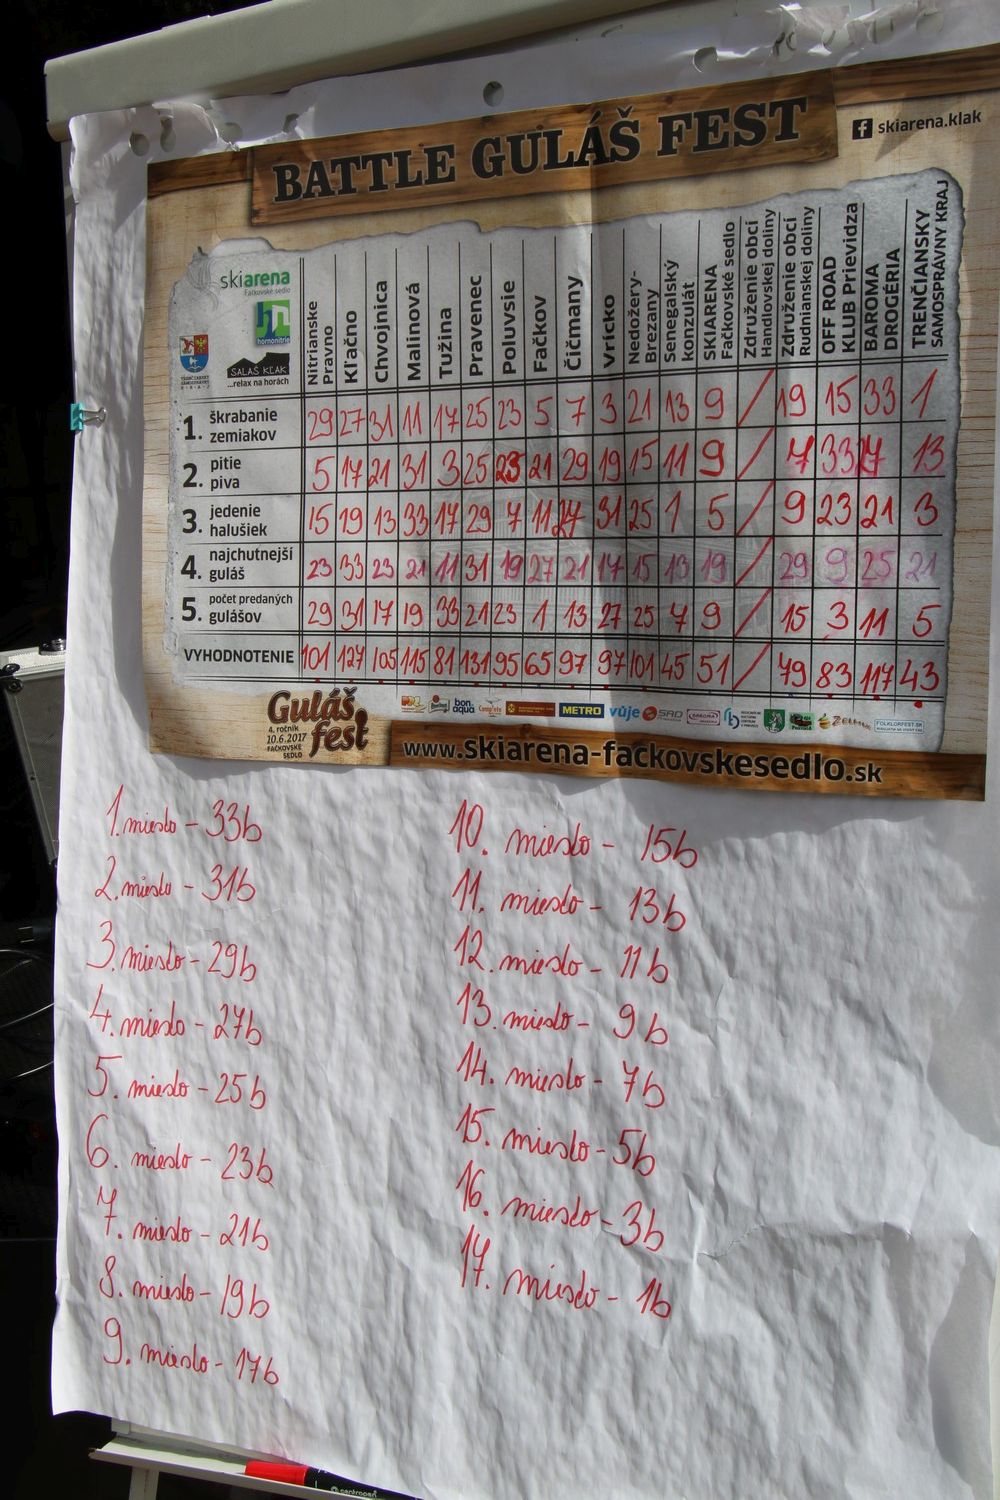 BATTLE GULÁŠ FEST
skiarena.klak
skiarena
Fačkovské sedlo
hornonitrie
SALAŠ KĽAK
...relax na horách
Nitrianske Pravno
Kľačno
Chvojnica
Malinová
Tužina
Pravenec
Poluvsie
Fačkov
Čičmany
Vrícko
Nedožery-Brezany
Senegalský konzulát
SKIARENA Fačkovské sedlo
Združenie obcí Handlovskej doliny
Združenie obcí Rudnianskej doliny
OFF ROAD KLUB Prievidza
BAROMA DROGÉRIA
TRENČIANSKY SAMOSPRÁVNY KRAJ
1. škrabanie zemiakov 29 27 31 11 17 25 23 5 7 3 21 13 9 / 19 15 33 1
2. pitie piva 5 17 21 31 3 25 23 21 29 19 15 11 9 / 7 33 27 13
3. jedenie halušiek 15 19 13 33 17 29 7 11 27 31 25 1 5 / 9 23 21 3
4. najchutnejší guláš 23 33 23 21 11 31 19 27 21 17 15 13 19 / 29 9 25 21
5. počet predaných gulášov 29 31 17 19 33 21 23 1 13 27 25 7 9 / 15 3 11 5
VYHODNOTENIE 101 127 105 115 81 131 95 65 97 97 101 45 51 / 79 83 117 43
Guláš fest
4. ročník
10.6.2017
FAČKOVSKÉ SEDLO
bon aqua
METRO
vúje
SAD
FOLKLORFEST.SK
www.skiarena-fackovskesedlo.sk
1. miesto - 33b
2. miesto - 31b
3. miesto - 29b
4. miesto - 27b
5. miesto - 25b
6. miesto - 23b
7. miesto - 21b
8. miesto - 19b
9. miesto - 17b
10. miesto - 15b
11. miesto - 13b
12. miesto - 11b
13. miesto - 9b
14. miesto - 7b
15. miesto - 5b
16. miesto - 3b
17. miesto - 1b
centropen